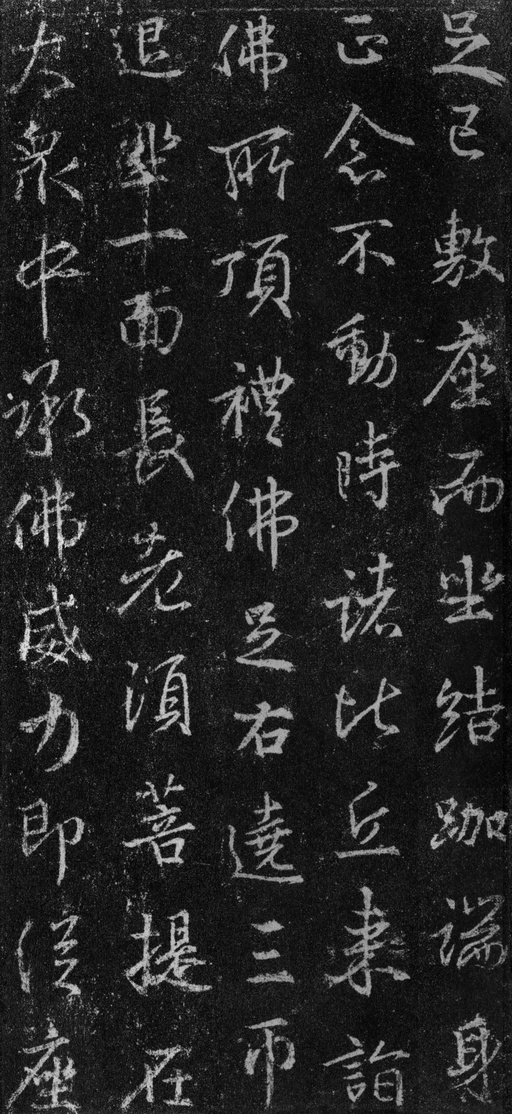 足已敷座而坐結跏端身
正念不動時諸比丘来詣
佛所頂禮佛足右遶三帀
退坐一面長老湏菩提在
大衆中承佛威力即従座